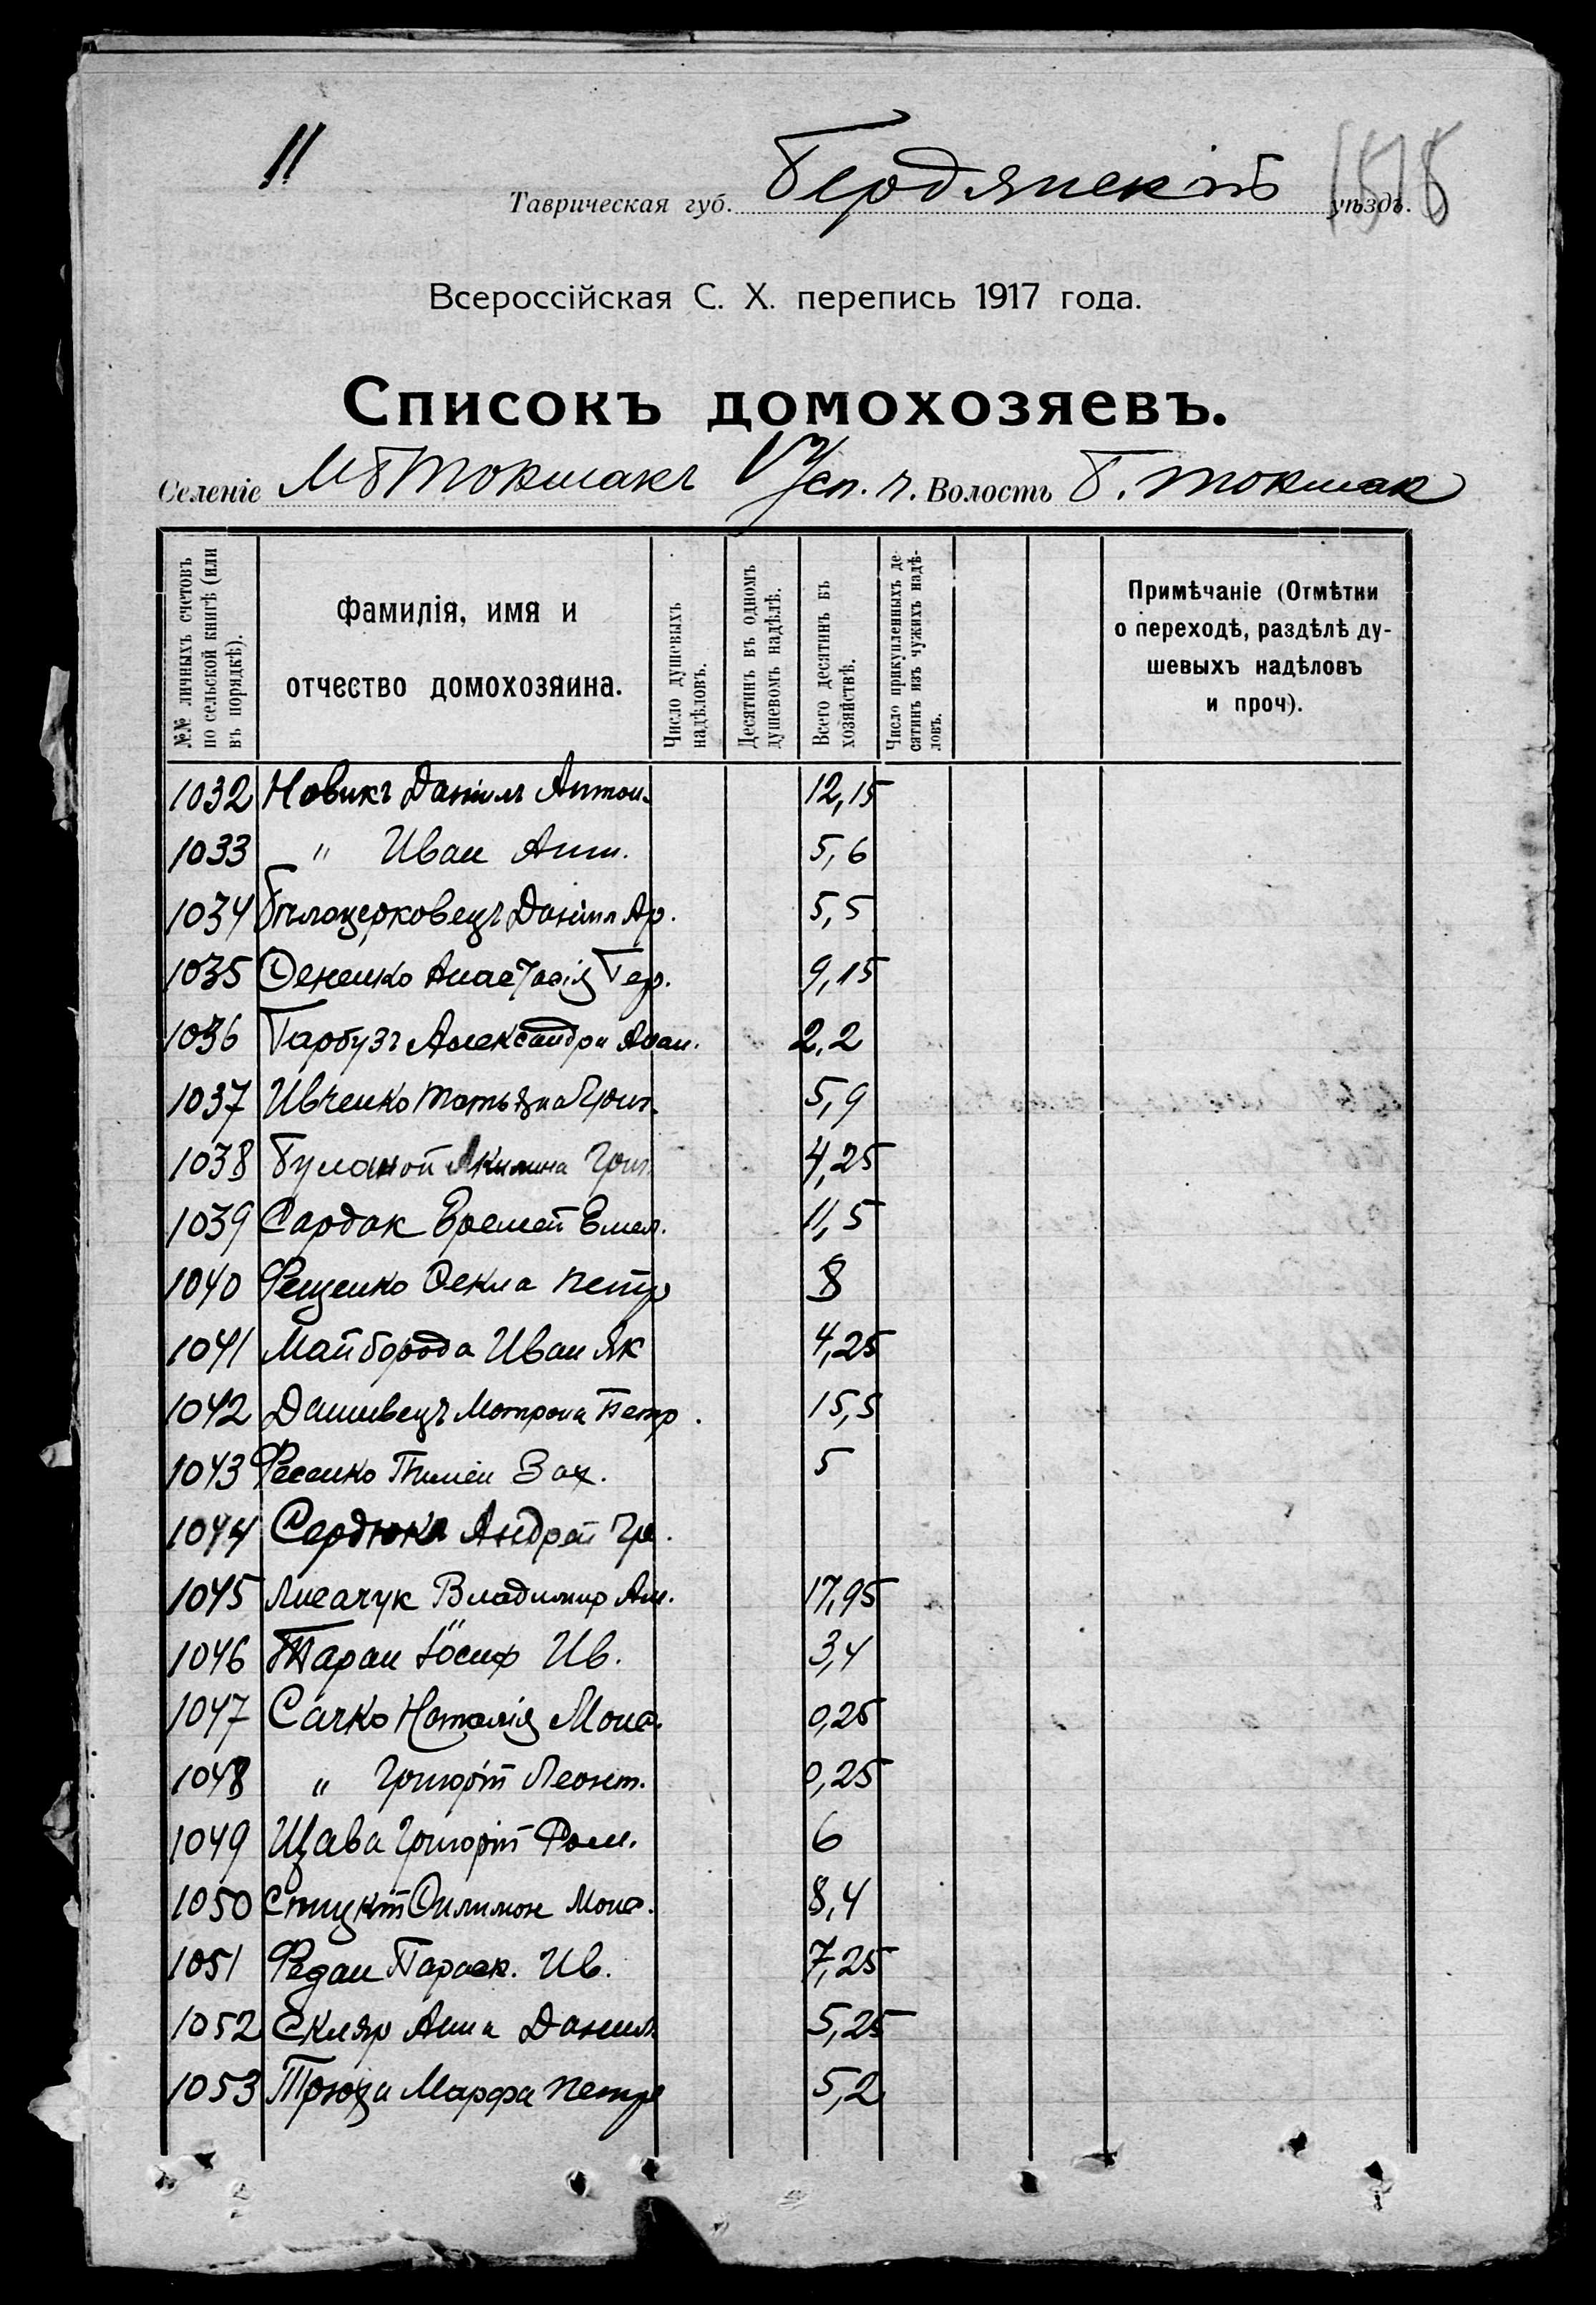 11
Таврическая губ. Бердянскій уѣздъ.
Всероссійская С. Х. перепись 1917 года.
Списокъ домохозяевъ.
Селеніе М Б Токмакъ V Усп. ч. Волость Б. Токмак
№№ личныхъ счетовъ по сельской книгѣ (или въ порядкѣ).
Фамилія, имя и отчество домохозяина.
Число душевыхъ надѣловъ.
Десятинъ въ одномъ душевомъ надѣлѣ.
Всего десятинъ въ хозяйствѣ.
Число прикупленныхъ десятинъ изъ чужихъ надѣловъ.
Примѣчаніе (Отмѣтки о переходѣ, раздѣлѣ душевыхъ надѣловъ и проч).
1032 Новикъ Даніилъ Антон. 12,15
1033 " Иван Ант. 5,6
1034 Бѣлоцерковецъ Даніил Ар. 5,5
1035 Ѳененко Анастасія Гер. 9,15
1036 Гарбузъ Александра Афан. 2,2
1037 Ивченко Татьяна Григ. 5,9
1038 Буланой Акилина Григ. 4,25
1039 Сардак Еремей Емел. 11,5
1040 Фещенко Ѳекла Петр 8
1041 Майборода Иван Як 4,25
1042 Дашивецъ Мотрона Петр. 15,5
1043 Фесенко Пимен Зах. 5
1044 Сердюкъ Андрей Гр.
1045 Лисачук Владимир Ан. 17,95
1046 Таран Іосиф Ив. 3,4
1047 Сачко Наталія Моис. 0,25
1048 " Григорій Леонт. 0,25
1049 Щава Григорій Ром. 6
1050 Ѳилимон Моис. 8,4
1051 Федан Параск. Ив. 7,25
1052 Скляр Анна Данил. 5,25
1053 Марфа Петр 5,2